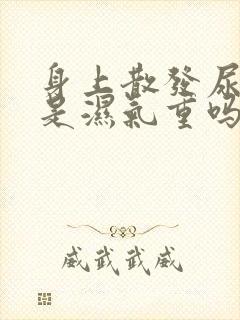 身上散發尿
是濕氣重嗎
威武武威